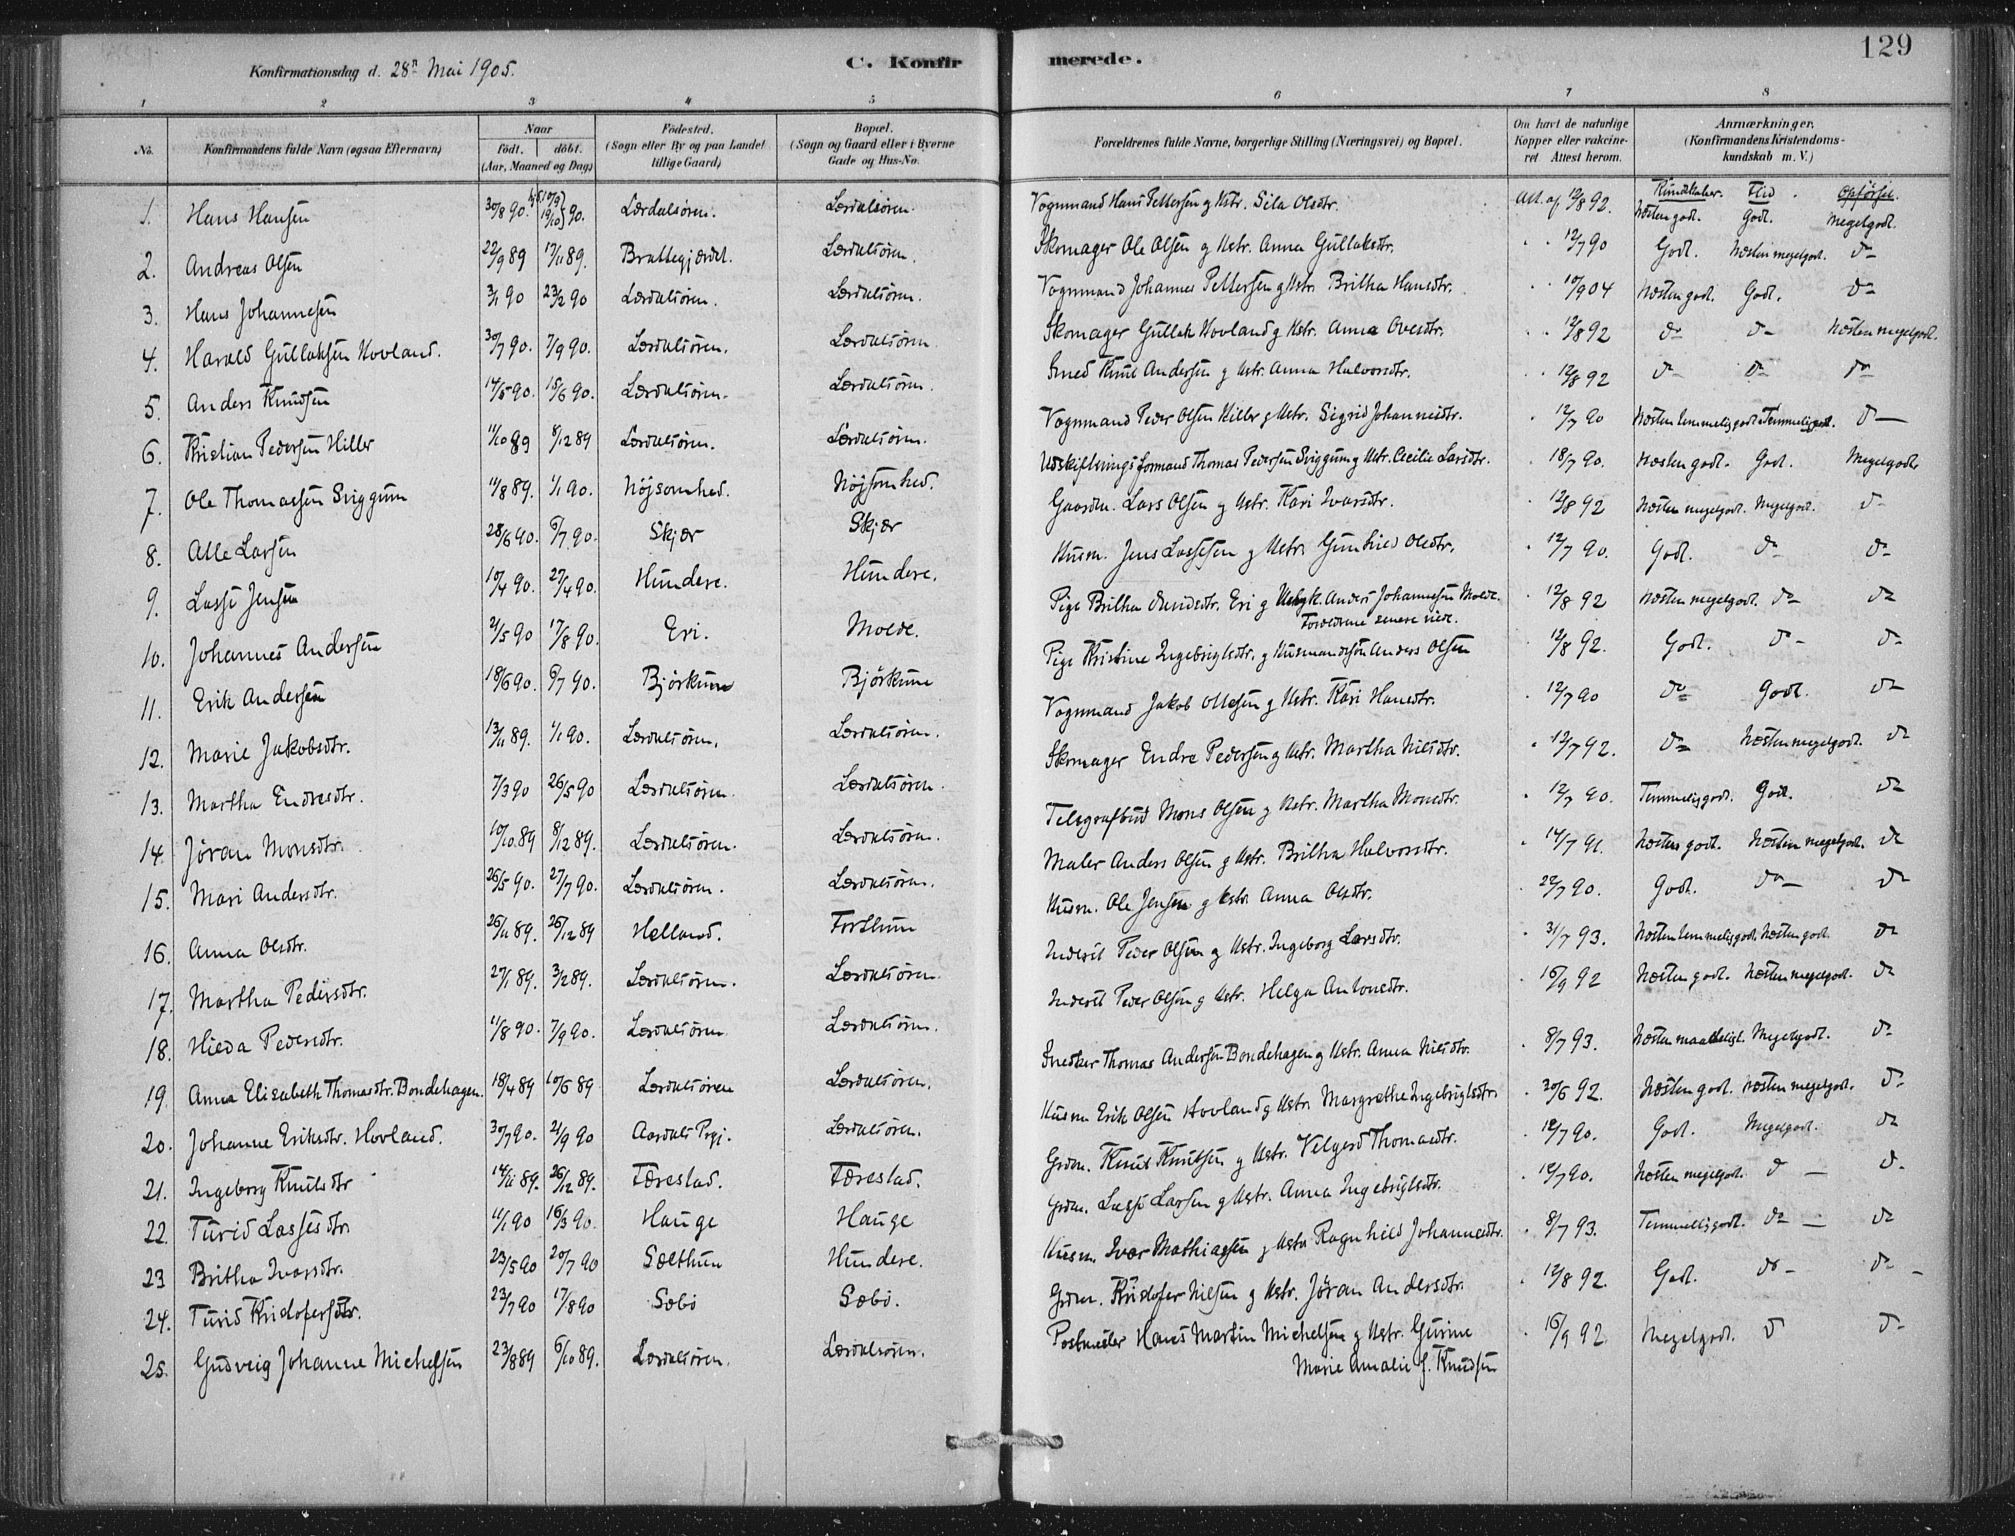 129
Konfirmationsdag d. 28de Mai 1905.
C. Konfirmerede.
1 2 3 4 5 6 7 8
No.
Konfirmandens fulde Navn (ogsaa Efternavn)
Naar
födt. döbt.
(Aar, Maaned og Dag)
Födested.
(Sogn eller By og paa Landet tillige Gaard)
Bopæl.
(Sogn og Gaard eller i Byerne Gade og Hus-No.
Forældrenes fulde Navne, borgerlige Stilling (Næringsvei) og Bopæl.
Om havt de naturlige Kopper eller vaccineret. Attest herom.
Anmærkninger.
(Konfirmandens Kristendomskundskab m. V.)
Kundskaber. Flid. Opførsel.
1. Hans Hansen 30/8 90. 10/9 19/10 } 90. Lærdalsøren. Lærdalsøren. Vognmand Hans Pettersen g Kstr. Sila Olsdtr. Att. af 12/8 92. Næsten godt. Godt. Megetgodt.
2. Andreas Olsen 22/9 89 17/11 89. Brattegjærdet. Lærdalsøren. Skomager Ole Olsen g Kstr. Anna Gullaksdtr. " " 12/7 90 Godt. Næsten megetgodt. do
3. Hans Johannesen 3/1 90 23/2 90 Lærdalsøren. Lærdalsøren. Vognmand Johannes Pettersen g Kstr. Britha Hansdtr. " " 10/9 04 Næsten godt. Godt. do
4. Harald Gullaksen Hovland. 30/7 90. 7/9 90. Lærdalsøren. Lærdalsøren. Skomager Gullak Hovland g Kstr. Anna Ovesdtr. " " 12/8 92 do do Næsten megetgodt.
5. Anders Knudsen 14/5 90. 15/6 90. Lærdalsøren. Lærdalsøren. Smed Knut Andersen g Kstr. Anna Halvorsdtr. " " 12/8 92 do do do
6. Kristian Pedersen Hiller 11/10 89 8/12 89 Lærdalsøren. Lærdalsøren. Vognmand Peder Olsen Hiller g Kstr. Sigrid Johannesdtr. " 12/7 90 Næsten temmeliggodt. Temmeliggodt. do
7. Ole Thomassen Sviggum 11/8 89. 1/1 90. Nøjsomhed. Nøjsomhed. Udskiftningsformand Thomas Pedersen Sviggum g Kstr. Cecilie Larsdtr. " 18/7 90. Næsten godt. Godt. Megetgodt
8. Atle Larsen 28/6 90. 6/7 90. Skjær Skjær Gaardm. Lars Olsen g Kstr. Kari Ivarsdtr. " 12/8 92 Næsten megetgodt. Megetgodt. do
9. Lasse Jensen 10/4 90. 27/4 90. Hundere. Hundere. Husm. Jens Lassesen g Kstr. Gunhild Olsdtr. " 12/7 90. Godt. do do
10. Johannes Andersen 21/5 90 17/8 90. Eri. Molde. Pige Britha Eri g Ungk. Anders Johannesen Molde. Forældrene senere viet. " 12/8 92 Næsten megetgodt. do do
11. Erik Andersen 18/6 90. 6/7 90. Bjørkum Bjørkum Pige Kristine Ingebrigtsdtr. g Husmandssøn Anders Olsen " 12/8 92. Godt. do do
12. Marie Jakobsdtr. 13/11 89. 1/1 90. Lærdalsøren. Lærdalsøren. Vognmand Jakob Olsen g Kstr. Kari Hansdtr. " 12/7 90 do Godt. do
13. Martha Endresdtr. 7/3 90 26/5 90 Lærdalsøren. Lærdalsøren. Skomager Endre Pedersen g Kstr. Martha Nilsdtr. " 12/7 92. do Næsten megetgodt. do
14. Jøran Monsdtr. 10/10 89 8/12 89. Lærdalsøren. Lærdalsøren. Telegrafbud Mons Olsen g Kstr. Martha Monsdtr. " 12/7 90. Temmeliggodt. Godt. do
15. Mari Andersdtr. 26/5 90. 27/7 90. Lærdalsøren. Lærdalsøren. Maler Anders Olsen g Kstr. Britha Halvorsdtr. " 14/7 91. Næsten godt. Næsten megetgodt. do
16. Anna Olsdtr. 26/11 89. 26/12 89 Helland. Forthun Husm. Ole Jensen g Kstr. Anna Olsdtr. " 22/7 90. Godt. do do
17. Martha Pedersdtr. 27/1 89. 3/2 89. Lærdalsøren. Lærdalsøren. Inderst Peder Olsen g Kstr. Ingeborg Larsdtr. " 31/7 93. Næsten temmeliggodt. Næsten godt. do
18. Hilda Pedersdtr. 11/8 90. 7/9 90. Lærdalsøren Lærdalsøren. Inderst Peder Olsen g Kstr. Helga Antonsdtr. " 16/9 92 Næsten godt. Næsten megetgodt. do
19. Anna Elisabeth Thomasdtr. Bondehagen. 18/4 89 10/6 89. Lærdalsøren Lærdalsøren. Snedker Thomas Andersen Bondehagen g Kstr. Anna Nilsdtr. " 8/7 93. Næsten maadeligt. Megetgodt. do
20. Johanne Eriksdtr. Hovland. 30/7 90. 21/9 90 Aardals Prgj. Lærdalsøren. Husm Erik Olsen Hovland g Kstr. Margrethe Ingebrigtsdtr. " 20/6 92. Næsten godt. Næsten megetgodt. do
21. Ingeborg Knutsdtr 14/11 89. 26/12 89. Færestad. Færestad. Grdm. Knut Knutsen g Kstr. Velgerd Thomasdtr. " 12/7 90. Godt. Megetgodt. do
22. Turid Lassesdtr. 11/1 90 16/3 90. Hauge Hauge Grdm. Lasse Larsen g Kstr. Anna Ingebrigtsdtr. " 12/7 90. Næsten megetgodt. do do
23 Britha Ivarsdtr. 23/5 90 20/7 90 Sælthun Hundere. Husm. Ivar Mathiasen g Kstr Ragnhild Johannesdtr. " 8/7 93. Temmeliggodt. do do
24. Turid Kristofersdtr. 23/7 90 17/8 90 Sæbø Sæbø. Grdm. Kristofer Nilsen g Kstr. Jøran Andersdtr. " 12/8 92. Godt. do do
25. Gudveig Johanne Michelsen 23/8 89 6/10 89. Lærdalsøren. Lærdalsøren. Postmester Hans Martin Michelsen g Kstr. Gurine Marie Amalie f. Knudsen " 16/9 92 Megetgodt. do do